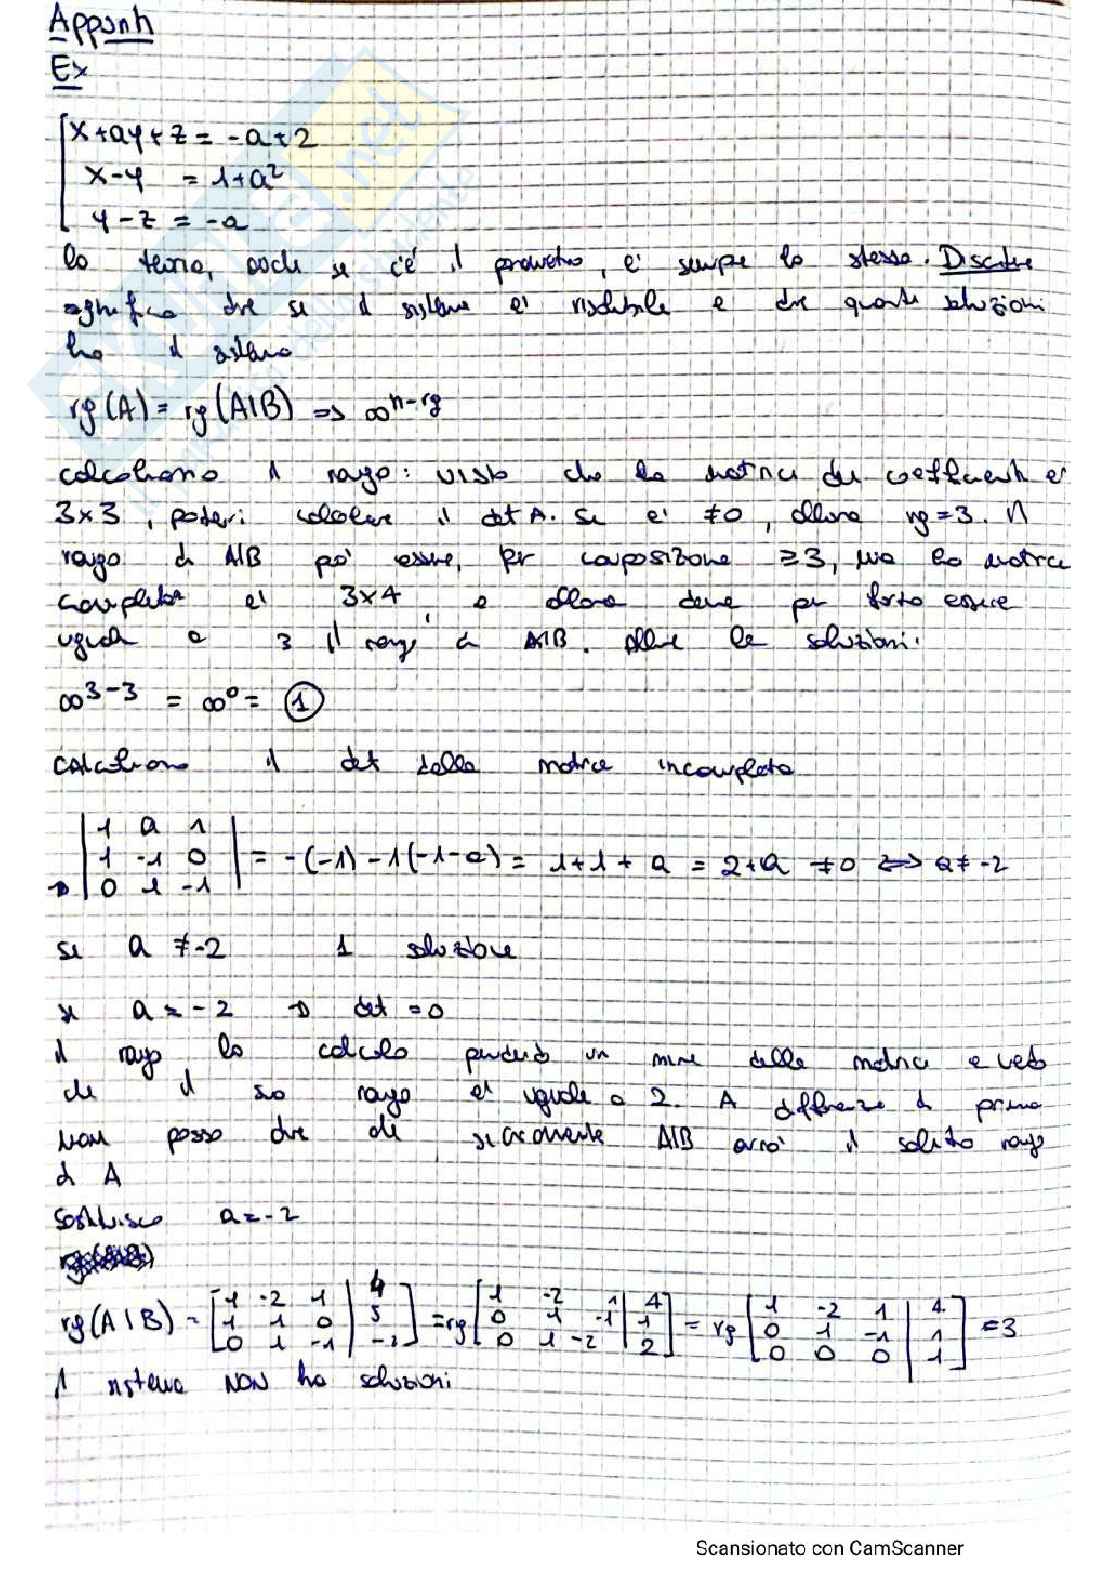 Appunti
Ex
x+ay+z = -a+2
x-y = 1+a²
y-z = -a
la teoria, anche se c'è il parametro, è sempre la stessa. Discutere
significa dire se il sistema è risolubile e dire quante soluzioni
ha il sistema
rg(A) = rg(A|B) => ∞^n-rg
calcoliamo il rango: visto che la matrice dei coefficienti è
3x3, calcolare il det A. Se è ≠0, allora rg=3. Il
rango di A|B può essere, per composizione ≥3, ma la matrice
completa è 3x4, e allora deve per forza essere
uguale a 3 il rango di A|B. Allora le soluzioni:
∞^3-3 = ∞^0 = 1
calcoliamo il det della matrice incompleta
|1 a 1|
|1 -1 0| = -(-1) -1(-1-a) = 1+1+a = 2+a ≠0 <=> a≠-2
|0 1 -1|
se a ≠-2 1 soluzione
se a = -2 → det =0
il rango lo calcolo prendendo un minore della matrice e vedo
che il suo rango è uguale a 2. A differenza di prima
non posso dire che sicuramente A|B avrà il solito rango
di A
Sostituisco a=-2
rg(A|B) = [1 -2 1 | 4] = rg [1 -2 1 | 4] = rg [1 -2 1 | 4] = 3
[1 -1 0 | 5] [0 1 -1 | 1] [0 1 -1 | 1]
[0 1 -1 | -2] [0 1 -2 | 2] [0 0 0 | 1]
Il sistema NON ha soluzioni
Scansionato con CamScanner